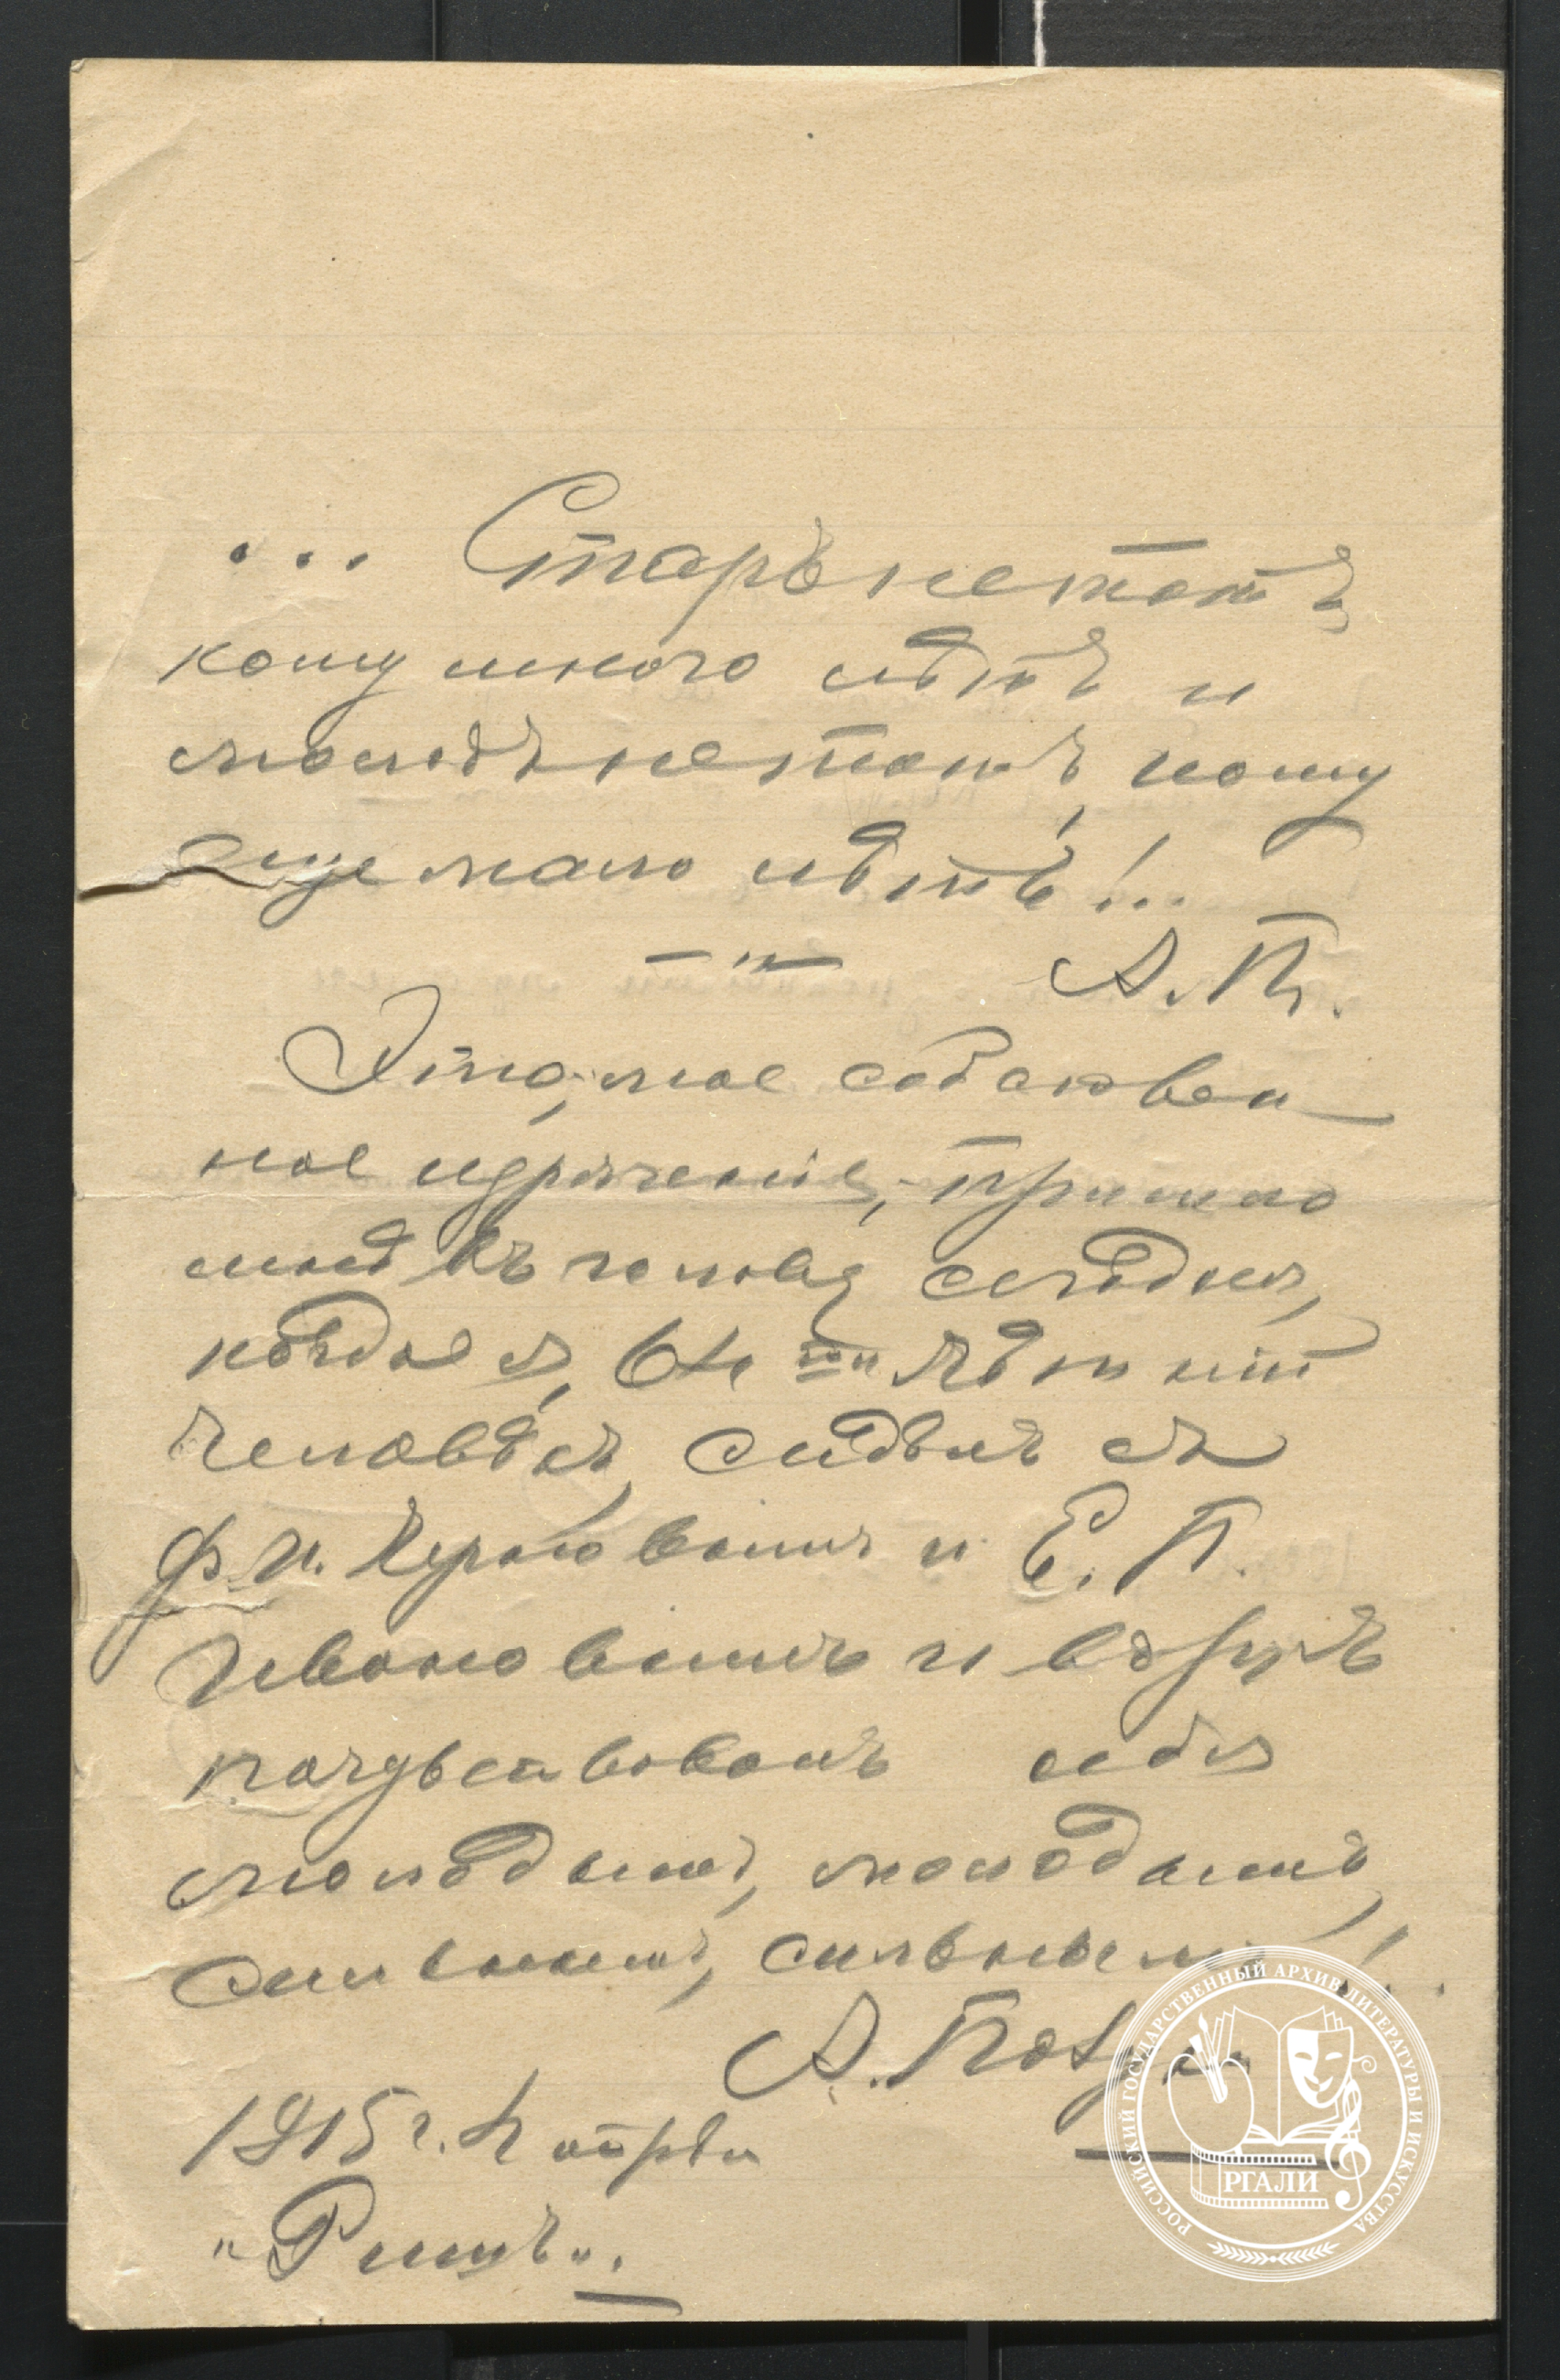 ... Старъ не тотъ
кому много лѣтъ и
молодъ не тотъ, кому
еще мало лѣтъ!..
А. П.
Это, мое собствен
ное изрѣченіе, пришло
мнѣ въ голову сегодня,
когда я, 64 лѣтній
человѣкъ, сидѣлъ съ
Ф. И. и Е. П.
Ивановымъ и вдругъ
почувствовалъ себя
молодымъ, молодымъ,
сильнымъ, сильнымъ!..
А.
1915 г. 4 апрѣл
„Римъ“.
РОССИЙСКИЙ ГОСУДАРСТВЕННЫЙ АРХИВ ЛИТЕРАТУРЫ И ИСКУССТВА
РГАЛИ